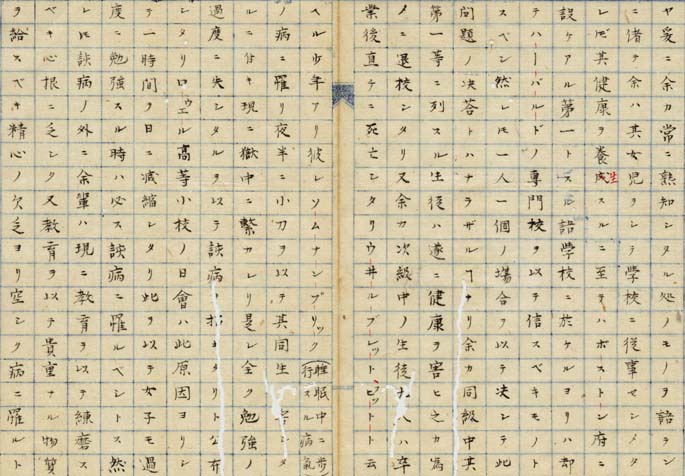 ヤ爰ニ余カ常ニ熟知シタル処ノモノヲ語ラン
ニ偖テ余ハ其女児ヲシテ学校ニ従事セシメタ
レ𪜈其健康ヲ養成生スルニ至テハボストン府ニ
設ケアル第一トスル語学校ニ於ケルヨリハ却
テハーバルドノ専門校ヲ以テ信スベキモノト
スベシ然レ𪜈一人一個ノ場合ヲ以テ决シテ此
問題ノ决答トハナラザルヿナリ余カ同級中其
第一等ニ列スル生徒ハ遂ニ健康ヲ害ヒ之カ為
メニ退校シタリ又余カ次級中ノ生徒九人ハ卒
業後直チニ死亡シタリウ井ルブレットヒットト云
ヘル少年アリ彼レソムナンブリック(睡眠中ニ歩行スル病気
ノ病ニ罹リ夜半ニ小刀ヲ以テ其同生ヲ シタ
ルニ付キ現ニ獄中ニ繋カレリ是レ全ク勉強ノ
過度ニ失シタルヲ以テ該病ヲ招キタリト公布
シタリロウエル高等小校ノ日會ハ此原因ヨリシ
テ一時間ヲ日ニ減縮シタリ此ヲ以テ女子モ過
度ニ勉強スル時ハ必ス該病ニ罹ルベシトス然
レ𪜈該病ノ外ニ余輩ハ現ニ教育ヲ以テ練磨ス
ベキ心根ニ乏シク又教育ヲ以テ貴重ナル物質
ヲ給スベキ精神ノ欠乏ヨリ空シク病ニ罹ルト